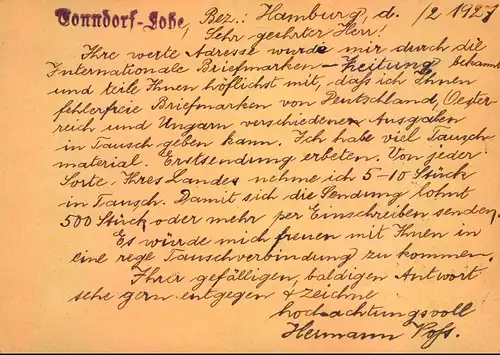 Tonndorf-Lohe, Bez.: Hamburg, d. /2 1927
Sehr geehrter Herr!
Ihre werte Adresse wurde mir durch die
Internationale Briefmarken-Zeitung bekannt
und teile Ihnen höflichst mit, dass ich Ihnen
fehlerfreie Briefmarken von Deutschland, Oester-
reich und Ungarn verschiedener Ausgaben
in Tausch geben kann. Ich habe viel Tausch-
material. Erstsendung erbeten. Von jeder
Sorte Ihres Landes nehme ich 5-10 Stück
in Tausch. Damit sich die Sendung lohnt
500 Stück oder mehr per Einschreiben senden.
Es würde mich freuen mit Ihnen in
eine rege Tauschverbindung zu kommen.
Ihrer gefälligen, baldigen Antwort
sehe gern entgegen & zeichne
hochachtungsvoll
Hermann Voss.